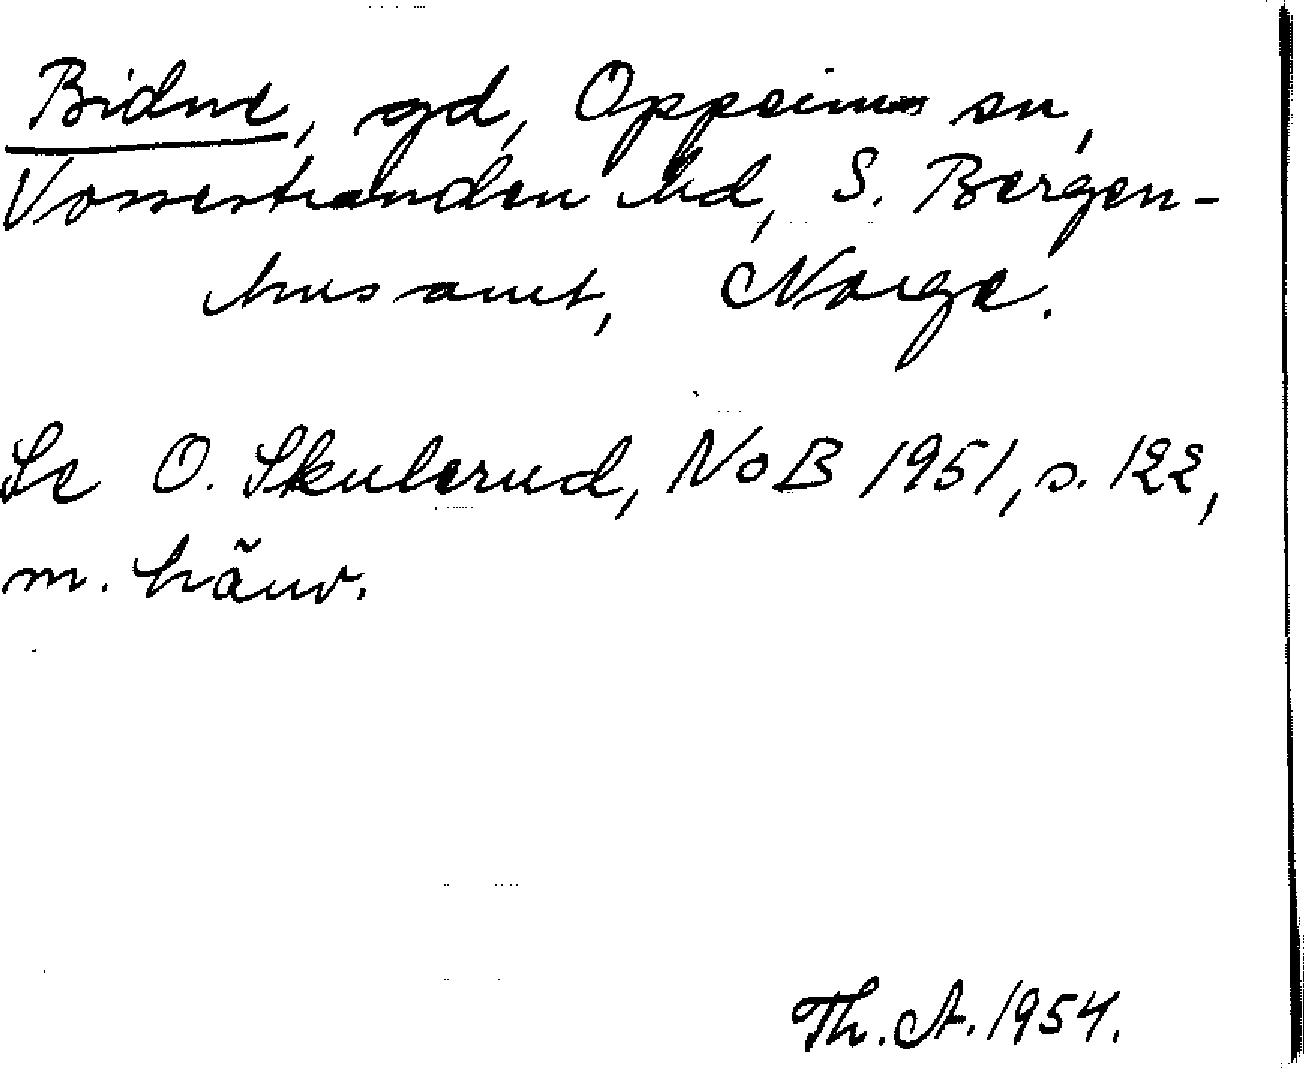 Bidne, gd, Oppeims sn,
Vossestranden hd, S. Bergen-
hus amt, Norge.
Se O. Skulerud, NoB 1951, s. 122,
m. hänv.
Th. A. 1954.